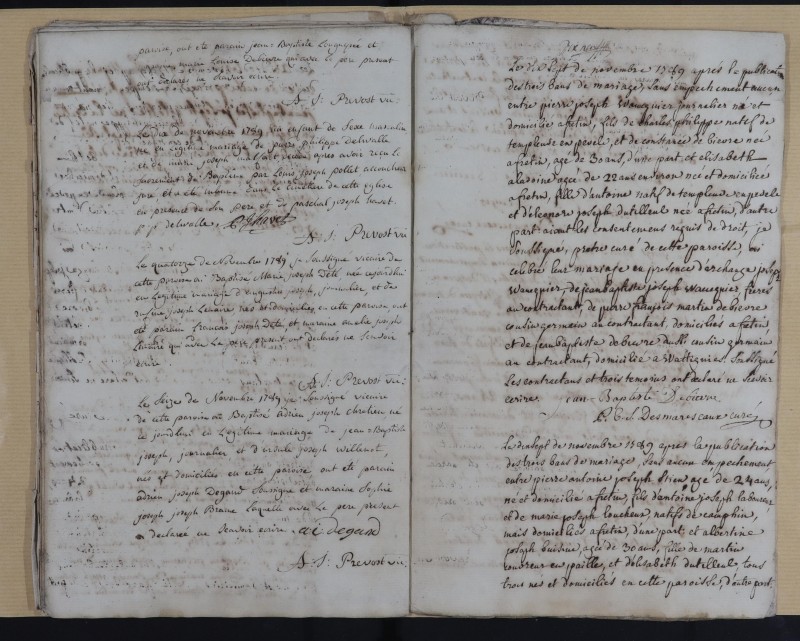 paroisse, ont été parain jean Baptiste
marie Louise Delievre qui avec le pere present
declarés ne scavoir ecrire
A. J. Prevost vic:
Le dix de novembre 1789 un enfant de sexe masculin
né en legitime mariage de pierre philippe Delivalle
et de marie joseph est decedé apres avoir reçu le
sacrement de Bapteme par Louis joseph pollet accoucheur
juré et a été inhumé dans le cimetiere de cette eglise
en presence de son pere et de paschal joseph havet
p. p. delivalle P J havet
A. J. Prevost vic
Le quatorze de Novembre 1789 je soussigné vicaire de
cette paroisse ai Baptisé Marie joseph née aujourdhui
en Legitime mariage d'augustin joseph, journalier et de
joseph Lemaire nés et domiciliés en cette paroisse ont
été parain François joseph et maraine amelie joseph
Lemaire qui avec Le pere present ont declarés ne scavoir
ecrire
A. J. Prevost vic:
Le Seize de Novembre 1789 je Soussigné vicaire
de cette paroisse ai Baptisé adrien joseph chretien né
ce jourdhui en Legitime mariage de jean-Baptiste
joseph, journalier et d'ursule joseph Willemot,
nés et domiciliés en cette paroisse ont été parain
adrien joseph Degand Soussigné et maraine Sophie
joseph joseph Braine Laquelle avec Le pere present
a declarée ne Scavoir ecrire a j degand
A. J. Prevost vic:
Dix neuf
Le dix Sept de novembre 1789 aprés la publication
des trois bans de mariage, Sans empechement aucun
entre pierre joseph Wauquier journalier né et
domicilié a fretin, fils de charles philippe natif de
templeuve en pevele, et de constance de bievre née
a fretin, agé de 30 ans, d'une part, et elisabeth
aladoine agée de 22 ans environ née et domiciliée
a fretin, fille d'antoine natif de templeuve en pevele
et d'eleonore joseph dutilleul née a fretin, d'autre
part aiant les consentemens requis de droit, je
Soussigné, pretre curé de cette paroisse, ai
celebré leur mariage en presence d'erchange joseph
Wauquier, de jean baptiste joseph Wauquier, freres
au contractant, de pierre françois martin de bievre
cousin germain au contractant, domiciliés a fretin,
et de jean baptiste de bievre dudit cousin germain
au contractant, domicilié a Wattignies. Soussigné
Les contractans et trois temoins ont declaré ne Scavoir
ecrire. jean Baptiste Debievre
P. C. J. Desmarescaux curé
Le dix Sept de novembre 1789 aprés la publication
des trois bans de mariage, Sans aucun empechement
entre pierre antoine joseph agé de 24 ans,
né et domicilié a fretin, fils d'antoine joseph laboureur
et de marie joseph Loucheux, natifs de camphin,
mais domiciliés a fretin, d'une part, et albertine
joseph buisine agée de 30 ans, fille de martin
couvreur en pailles, et d'elisabeth dutilleul, tous
trois nés et domiciliés en cette paroisse, d'autre part.